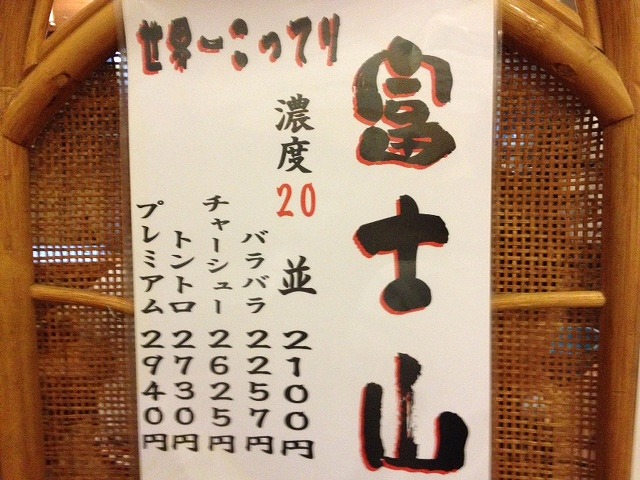 世界一こってり
富士山
濃度20 並 2100円
バラバラ 2257円
チャーシュー 2625円
トントロ 2730円
プレミアム 2940円